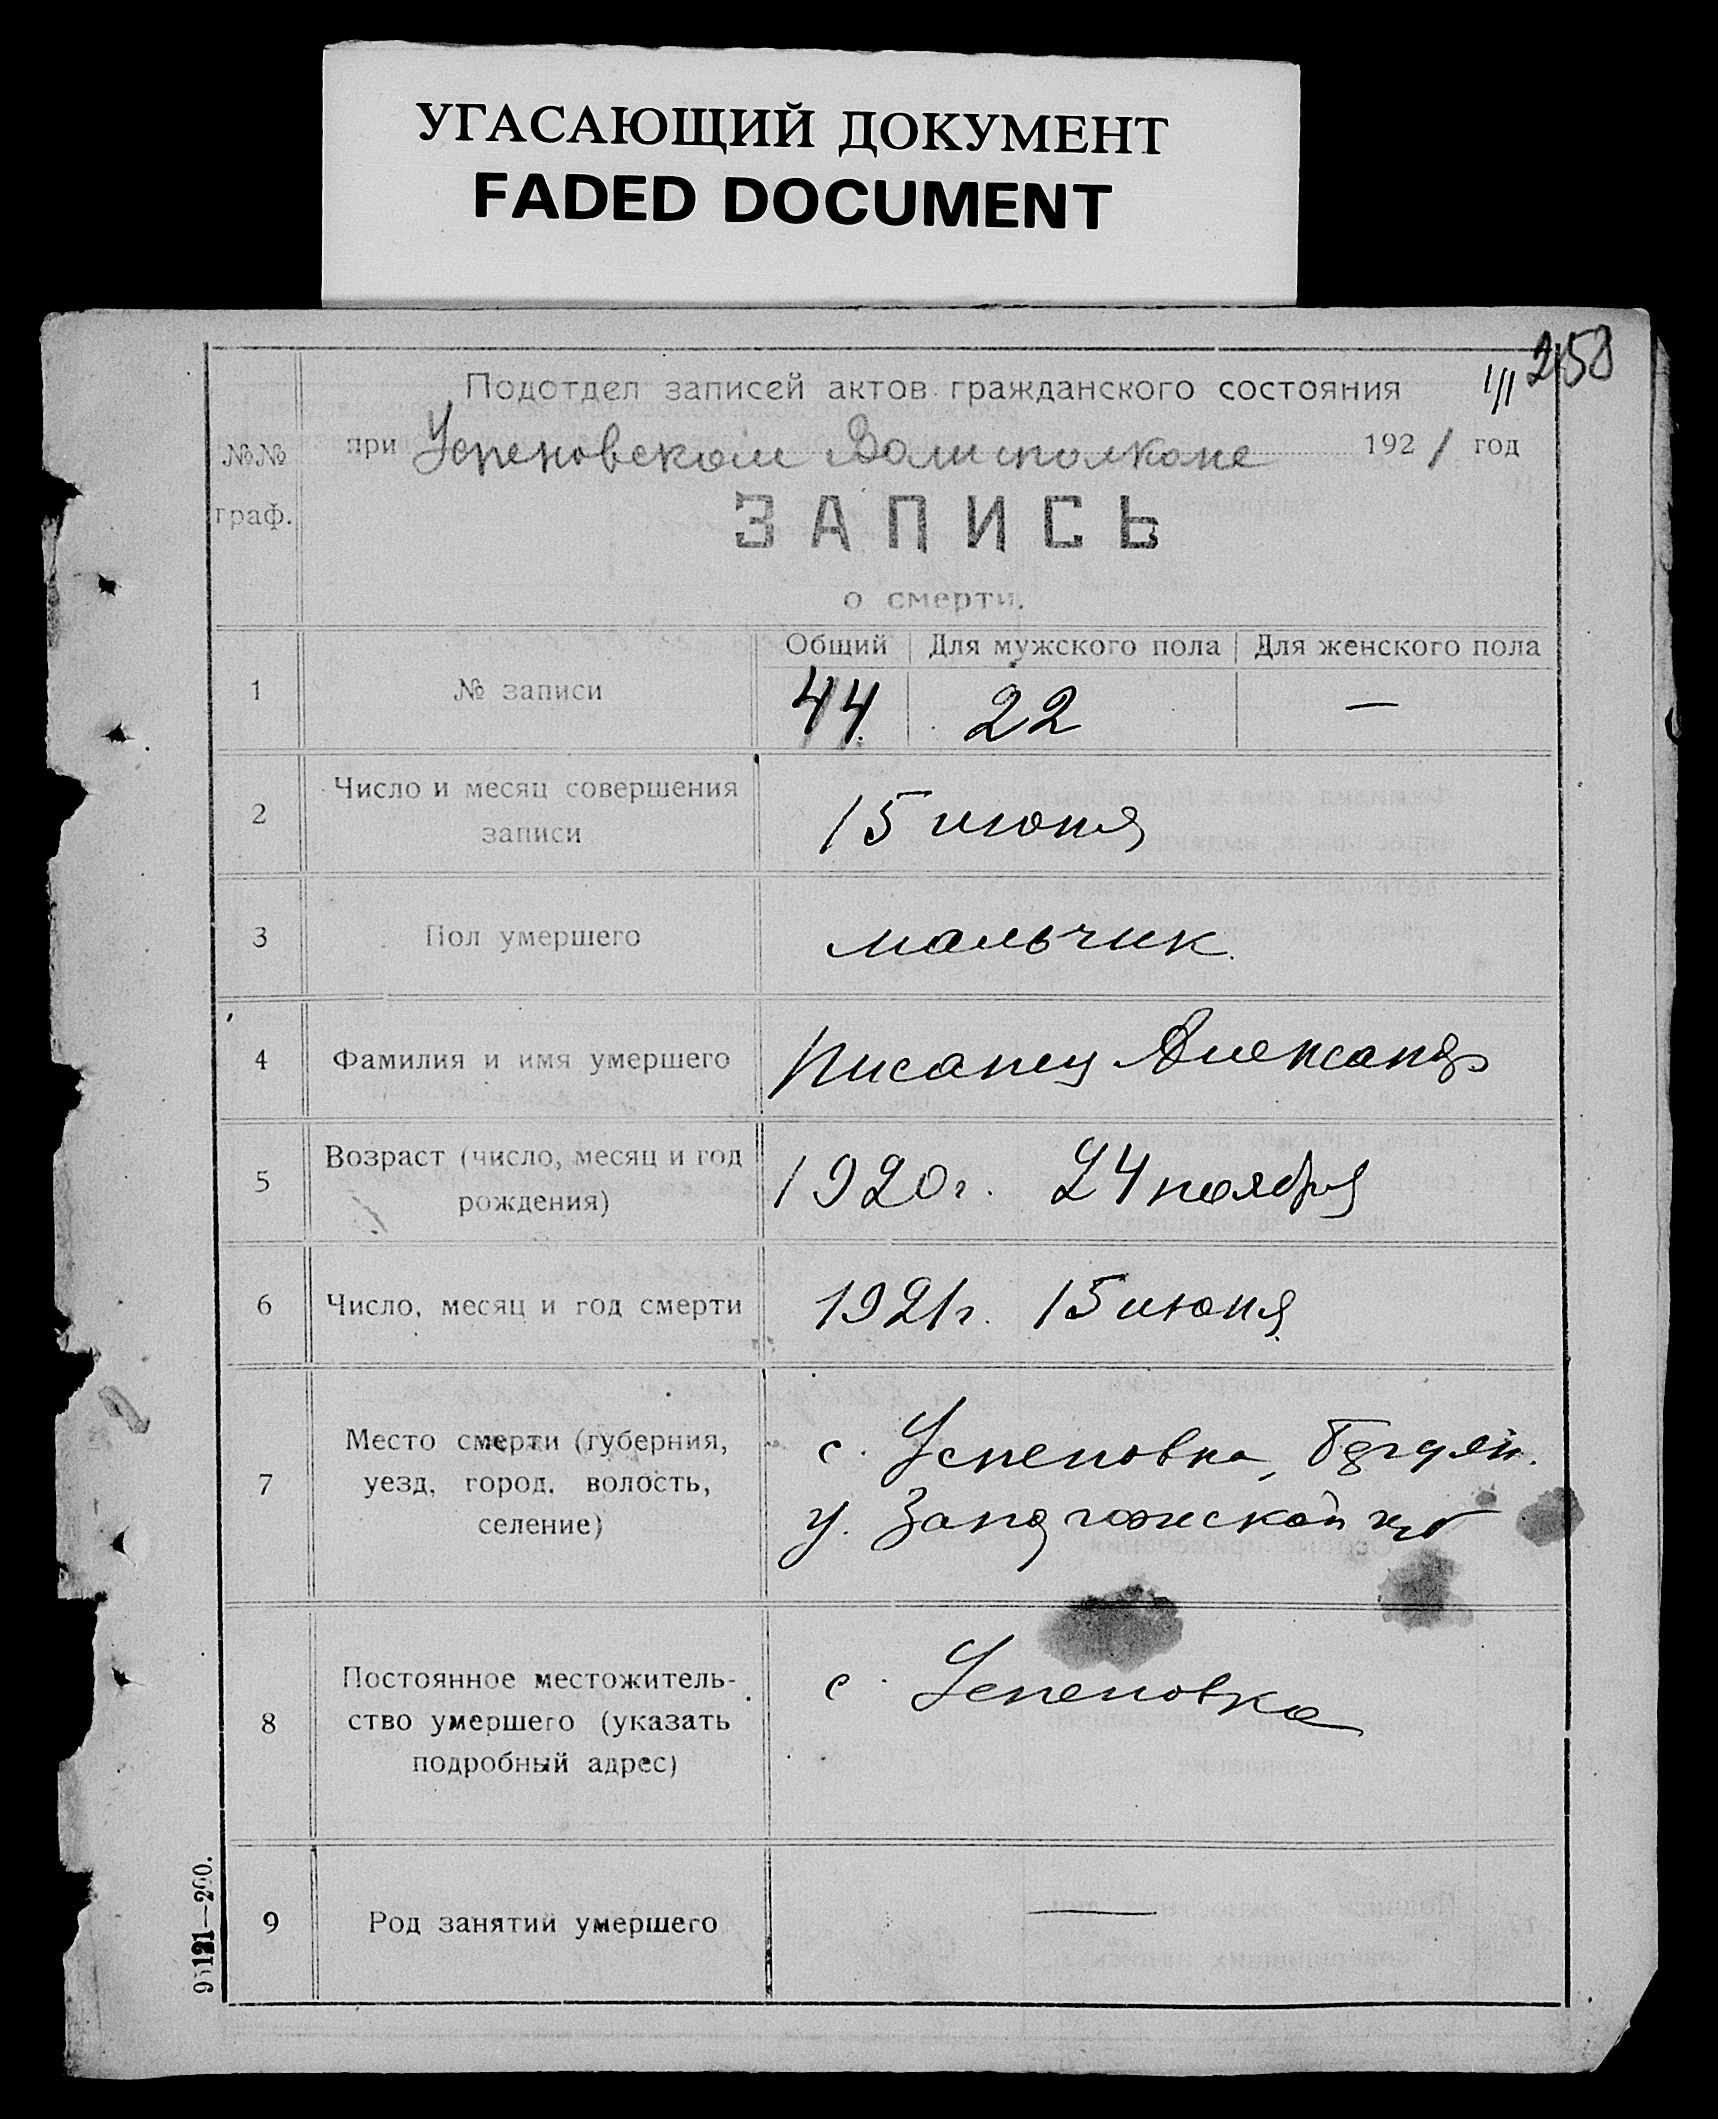 УГАСАЮЩИЙ ДОКУМЕНТ
FADED DOCUMENT
258
Подотдел записей актов гражданского состояния
при Успеновском Волисполкоме 1921 год
№№
граф.
ЗАПИСЬ
о смерти.
Общий Для мужского пола Для женского пола
1 № записи 44. 22 —
2 Число и месяц совершения
записи
15 июня
3 Пол умершего мальчик.
4 Фамилия и имя умершего Писанец Александр
5 Возраст (число, месяц и год
рождения)
1920 г. 24 ноября
6 Число, месяц и год смерти 1921 г. 15 июня
7 Место смерти (губерния,
уезд, город, волость,
селение)
с. Успеновка, Бердян.
у. Запорожской губ
8 Постоянное местожитель-
ство умершего (указать
подробный адрес)
с. Успеновка
9 Род занятий умершего —